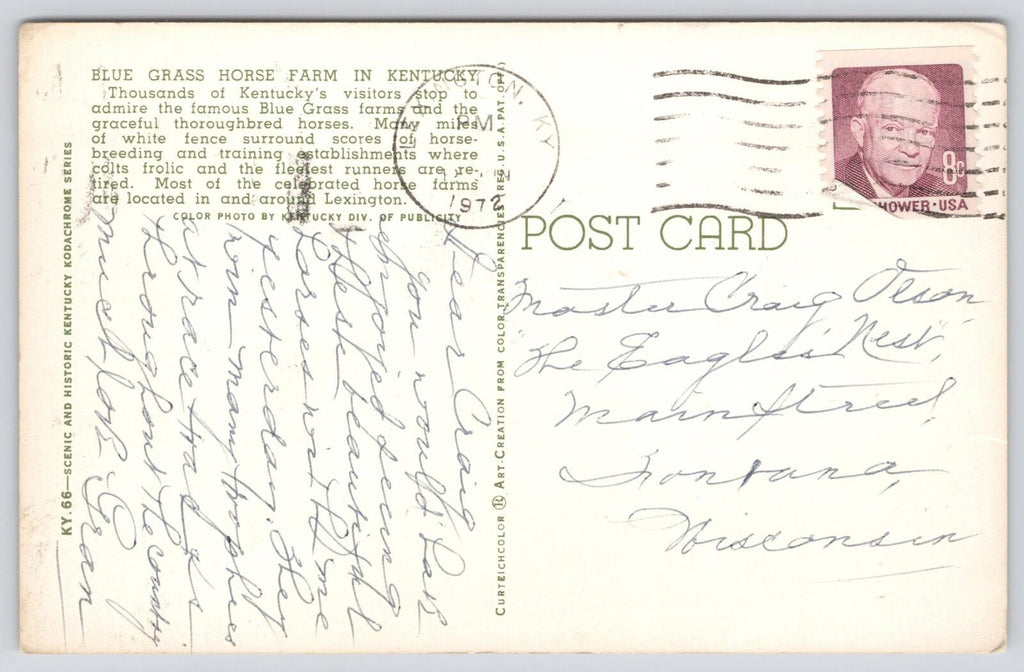 BLUE GRASS HORSE FARM IN KENTUCKY
Thousands of Kentucky's visitors stop to
admire the famous Blue Grass farms and the
graceful thoroughbred horses. Many miles
of white fence surround scores of horse-
breeding and training establishments where
colts frolic and the fleetest runners are re-
tired. Most of the celebrated horse farms
are located in and around Lexington.
COLOR PHOTO BY KENTUCKY DIV. OF PUBLICITY
KY.66—SCENIC AND HISTORIC KENTUCKY KODACHROME SERIES
CURTEICHCOLOR ® ART-CREATION FROM COLOR TRANSPARENCIES REG. U.S.A. PAT. OFF.
LEXINGTON, KY
PM
1972
8c
HOWER · USA
POST CARD
Dear Craig
You would have
enjoyed seeing
these beautiful
horses with me
yesterday. They
won many trophies
at race tracks
throughout the country
much love Gran
Master Craig Olson
"The Eagles' Nest"
Main Street
Fontana,
Wisconsin